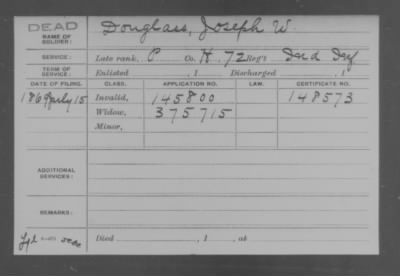 DEAD
NAME OF SOLDIER: Douglass, Joseph W.
SERVICE: Late rank, P Co. H, 72 Reg't Ind Inf
TERM OF SERVICE: Enlisted , 1 Discharged , 1
DATE OF FILING. CLASS. APPLICATION NO. LAW. CERTIFICATE NO.
1869 July 15 Invalid, 145800 148573
Widow, 375715
Minor,
ADDITIONAL SERVICES:
REMARKS:
Died , 1 , at